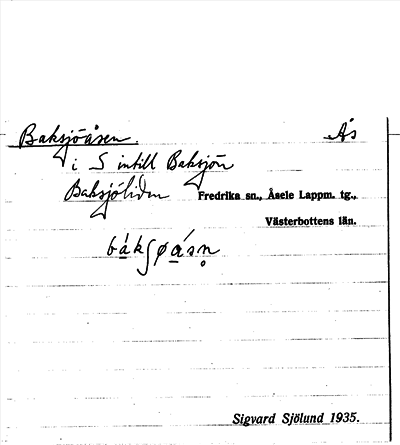 Baksjöåsen. Ås
i S intill Baksjön
Baksjöliden Fredrika sn., Åsele Lappm. tg.,
Västerbottens län.
bákʃøásn̥
Sigvard Sjölund 1935.